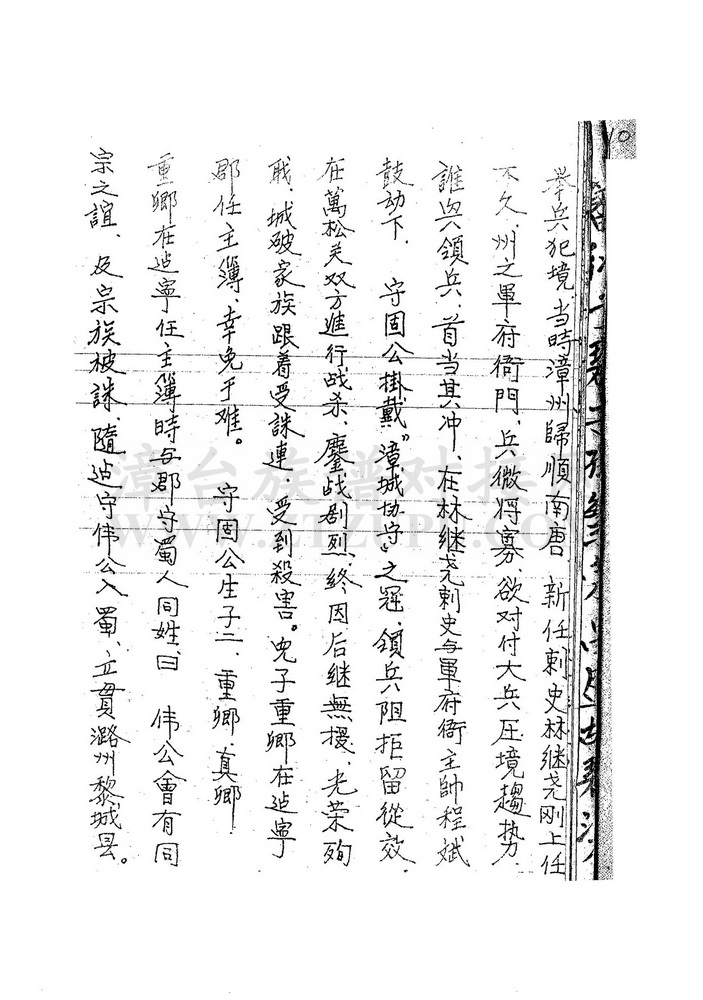 10
举兵犯境,当時漳州歸順南唐 新任刺史林继尧刚上任
不久,州之軍府衙門,兵微将寡,欲对付大兵压境趨势,
誰與領兵,首当其冲,在林继尧刺史与軍府衙主帥程斌
鼓动下. 守固公掛戴"漳城协守"之冠,領兵阻拒留從效.
在萬松关双方進行战杀,鏖战剧烈,終因后继無援,光荣殉
戝,城破家族跟着受誅連,受到殺害。兒子重卿在迠寧
郡任主簿、幸免于难。 守固公生子二、重卿、真卿
重卿在迠寧任主簿時与郡守蜀人同姓,曰 伟公會有同
宗之誼、及宗族被誅,隨迠守伟公入蜀、立貫潞州黎城县。
漳台族譜对接
WWW.ZTZUPU.COM